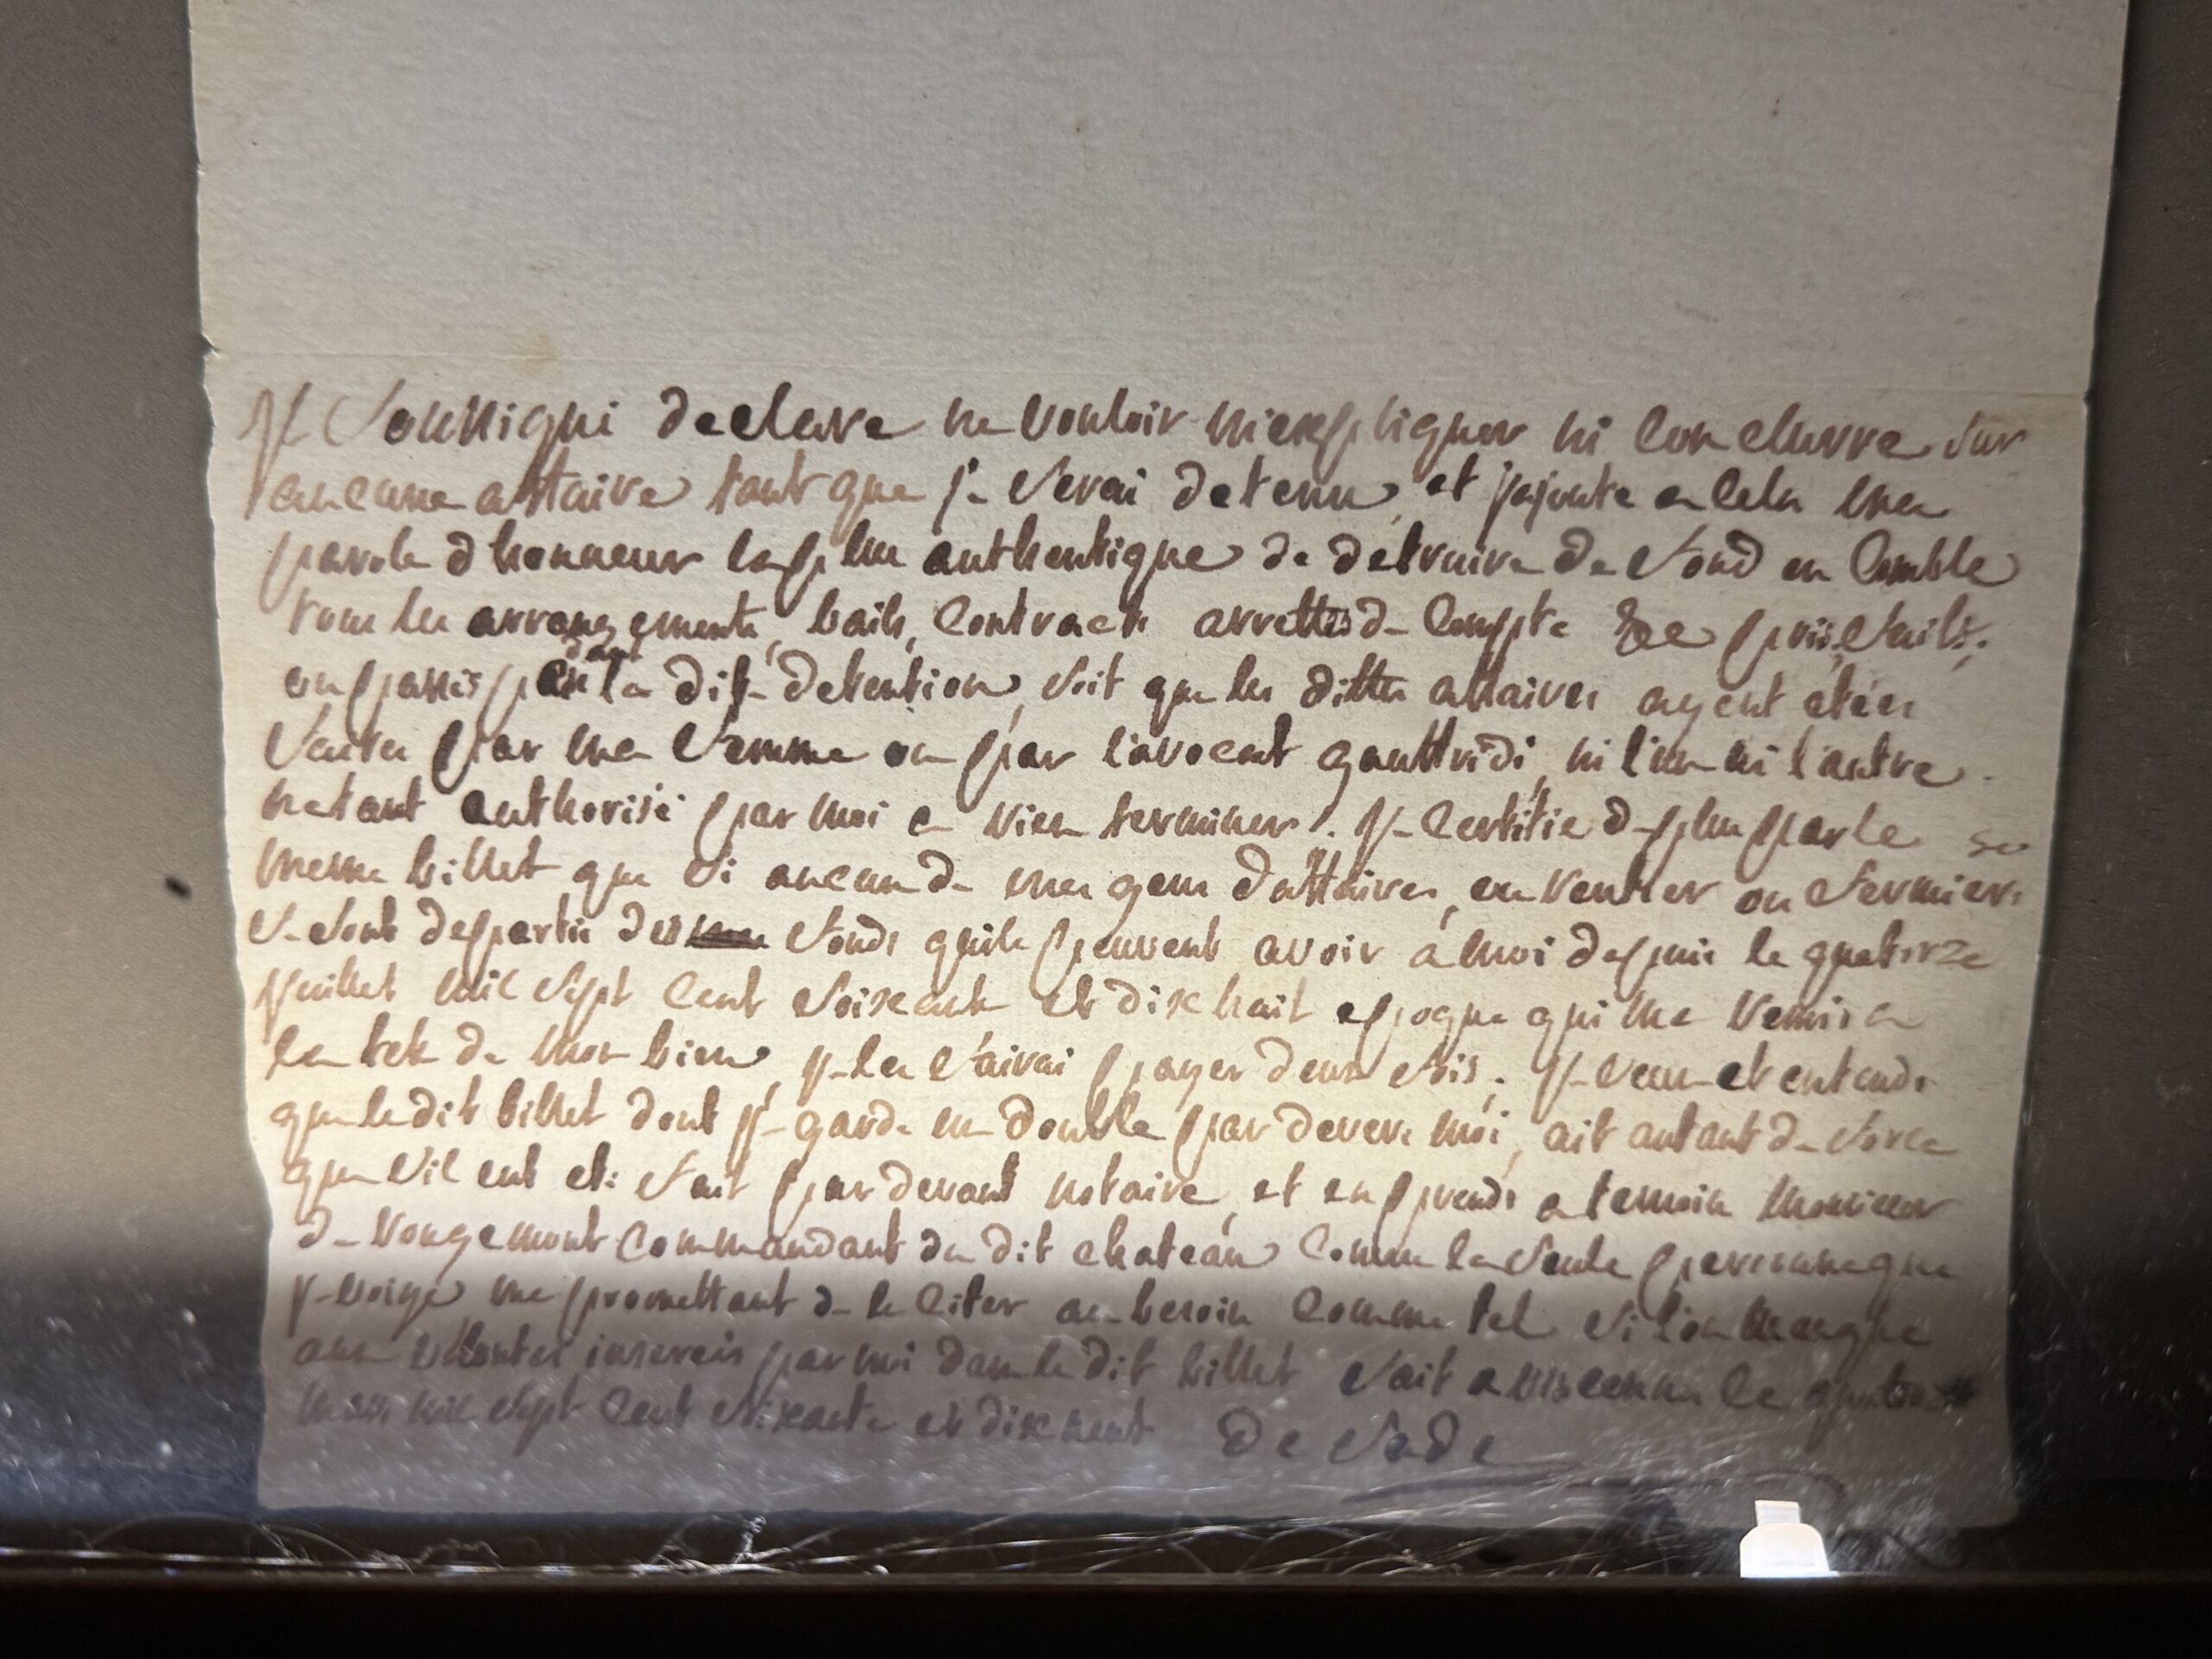 Je soussigné declare ne vouloir m'expliquer ni conclurre sur
aucune affaire tant que je serai detenu, et j'ajoute a cela ma
parole d'honneur la plus authentique de detruire de fond en comble
tous les arrangements, bails, contracts arrettés de compte &c pris, faits,
ou passés pendant la dite detention, soit que les dittes affaires ayent étées
faites par ma femme ou par l'avocat gauffridi, ni l'un ni l'autre
netant authorisé par moi a rien terminer. Je certifie de plus par le
meme billet que si aucun de mes gens d'affaires, ou rentier ou fermiers
se sont departis des fonds quils peuvent avoir à moi depuis le quatorze
juillet mil sept cent soixante et dix huit epoque qui me remis a
la tete de mon bien, je les fairai payer deux fois. Je veux et entends
que le dit billet dont je garde un double par devers moi, ait autant de force
que s'il eut eté fait par devant notaire, et en prends a temoin monsieur
de rougemont commandant du dit chateau comme la seule personne que
je voiye me promettant de le citer au besoin comme tel si l'on manque
aux volontés inserées par moi dans le dit billet fait a vincennes le
mars mil sept cent soixante et dix neuf de Sade